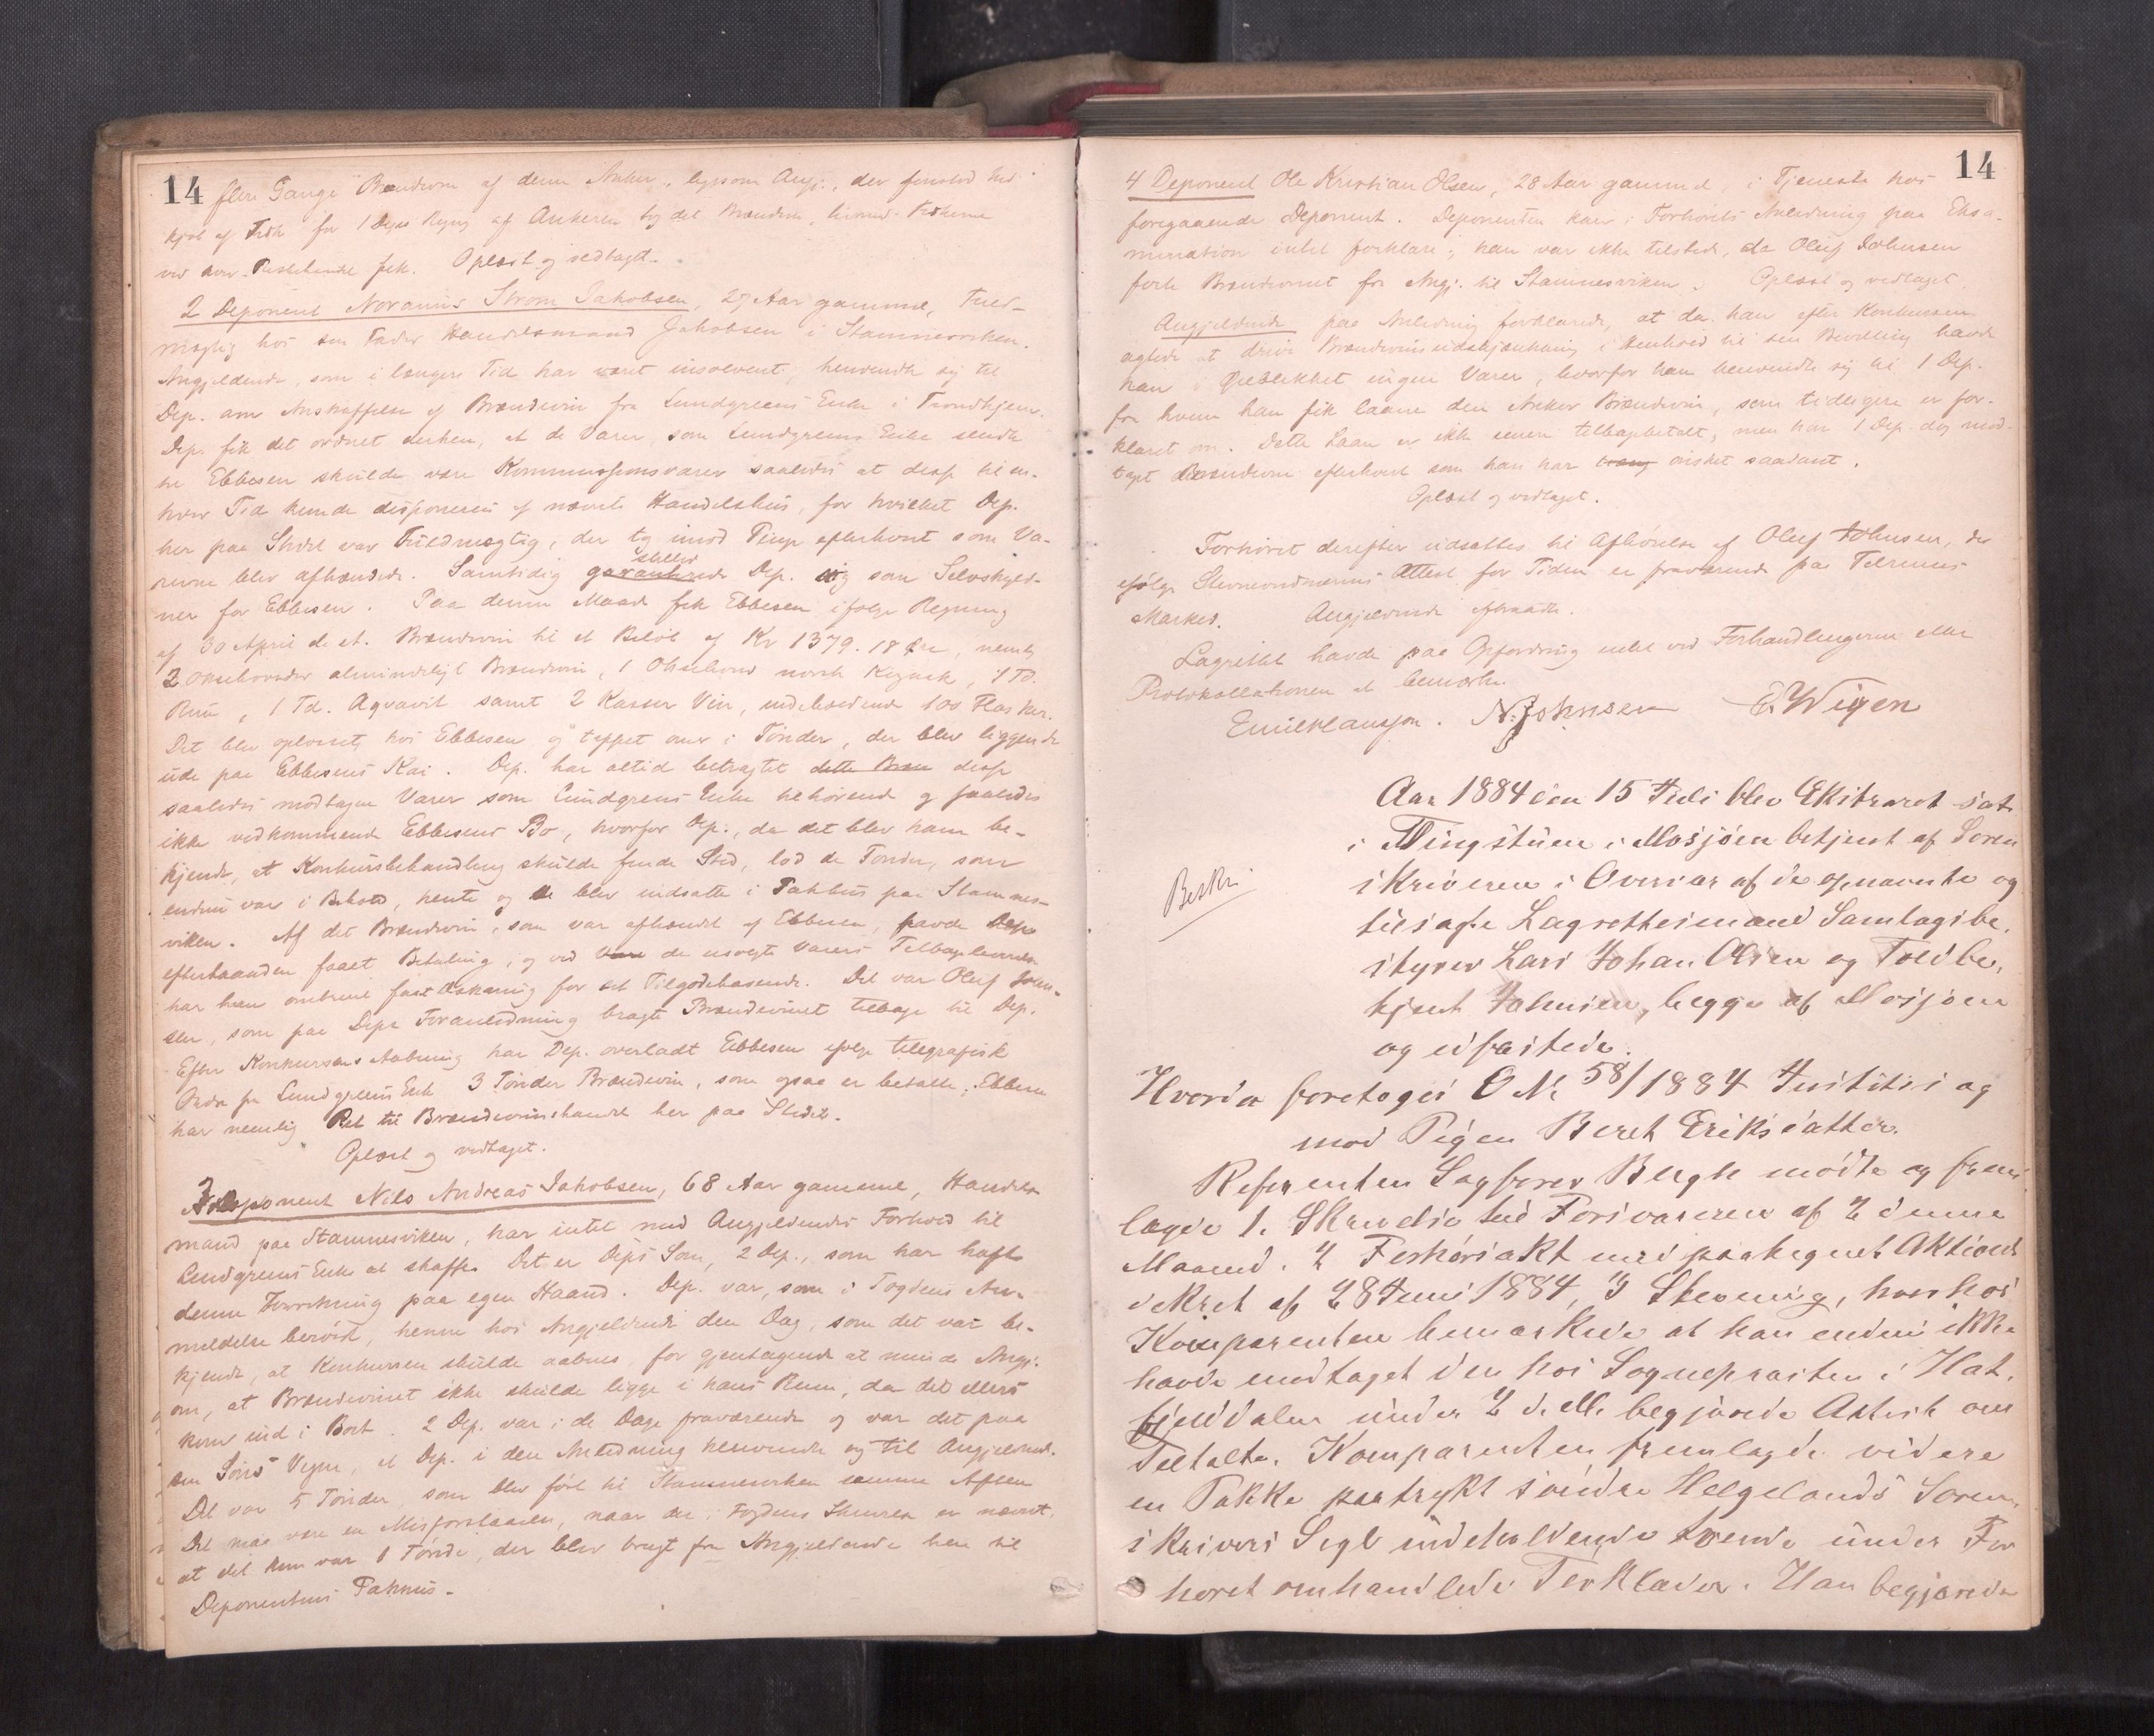 14
flere Gange Brændevin af denne Anker, ligesom Angj., der
kjøb af Fisk for 1 Deps Regng af Ankeren tog det Brændevin,
ved fik. Oplæst og vedtaget.
2 Deponent Novanus Strøm Jakobsen, 27 Aar gammel, Fuld-
mægtig hos sin Fader Handelsmand Jakobsen i Stamnesviken.
Angjeldende, som i længere Tid har været insolvent, henvendte sig til
Dep. om Anskaffelse af Brændevin fra Lundgreens Enke i Trondhjem.
Dep. fik det ordnet derhen, at de Varer, som Lundgreens Enke sendte
til Ebbesen skulde være Kommissionsvarer saaledes at disse til en-
hver Tid kunde disponeres af nævnte Handelshus, for hvilket Dep.
her paa Stedet var Fuldmægtig, der tog imod Penge efterhvert som Va-
rerne blev afhændede. Samtidig garanterede stillede Dep. sig som Selvskyld-
ner for Ebbesen. Paa denne Maade fik Ebbesen ifølge Regning
af 30 April d. A. Brændevin til et Beløb af Kr 1379.18 Øre, nemlig
2 Oxehoveder almindeligt Brændevin, 1 Oxehoved norsk Kognak, 1 Td.
Rum, 1 Td. Aqvavit samt 2 Kasser Vin, indeholdende 100 Flasker.
Det blev oplosset hos Ebbesen og tappet om i Tønder, der blev liggende
ude paa Ebbesens Kai. Dep. har altid betragtet dette Bræn disse
saaledes modtagne Varer som Lundgrens Enke tilhørende og saaledes
ikke vedkommende Ebbesens Bo, hvorfor Dep., da det blev ham be-
kjendt, at Konkursbehandling skulde finde Sted, lod de Tønder, som
endnu var i Behold, hente og de blev indsatte i Pakhus paa Stamnes-
viken. Af det Brændevin, som var afhændet af Ebbesen, havde Dep.
efterhaanden faaet Betaling, og ved Vare de usolgte Varers Tilbagelevering
har han omtrent faaet Dækning for sit Tilgodehavende. Det var Oluf John-
sen, som paa Deps Foranledning bragte Brændevinet tilbage til Dep.
Efter Konkursens Aabning har Dep. overladt Ebbesen ifølge telegrafisk
Ordre fra Lundgreens Enke 3 Tønder Brændevin, som ogsaa er betalte; Ebbesen
har nemlig Ret til Brændevinshandel her paa Stedet.
Oplæst og vedtaget.
3 Deponent Nils Andreas Jakobsen, 68 Aar gammel, Handels-
mand paa Stamnesviken, har intet med Angjeldendes Forhold til
Lundgreens Enke at skaffe. Det er Deps Søn, 2 Dep., som har haft
denne Forretning paa egen Haand. Dep. var, som i Fogdens An-
meldelse berørt, henne hos Angjeldende den Dag, som det var be-
kjendt, at Konkursen skulde aabnes, for gjentagende at minde Angj.
om, at Brændevinet ikke skulde ligge i hans Rum, da det ellers
kom ind i Boet. 2 Dep. var i de Dage fraværende og var det paa
sin Søns Vegne, at Dep. i den Anledning henvendte sig til Angjeldende.
Det var 5 Tønder, som blev ført til Stamnesviken samme Aften.
Det maa være en Misforstaaelse, naar der i Fogdens Skrivelse er nævnt,
at det kun var 1 Tønde, der blev bragt fra Angjeldende hen til
Deponentens Pakhus.
14
4 Deponent Ole Kristian Olsen, 28 Aar gammel, i Tjeneste hos
foregaaende Deponent. Deponenten kan i Forhørets Anledning paa Eksa-
mination intet forklare; han var ikke tilstede, da Oluf Johnsen
førte Brændevinet fra Angj. til Stamnesviken. Oplæst og vedtaget.
Angjeldende paa Anledning forklarede, at da han efter Konkursen
agtede at drive Brændevinsudskjænkning i Henhold til sin Bevilling havde
han i Øieblikket ingen Varer, hvorfor han henvendte sig til 1 Dep.
fra hvem han fik laane den Anker Brændevin, som tidligere er for-
klaret om. Dette Laan er ikke senere tilbagebetalt, men har 1 Dep. dog mod-
taget Brændevin efterhvert som han har ønsket saadant.
Oplæst og vedtaget.
Forhøret derefter udsattes til Afhørelse af Oluf Johnsen, der
ifølge Stevnevidnernes Attest for Tiden er fraværende paa
Marked. Angjeldende
Lagrettet havde paa Opfordring intet ved Forhandlingerne eller
Protokollationen at bemærke.
Emil Klausen. N. Johnsen E. Wigen
Aar 1884 den 15 Juli blev Ekstraret sat
i Thingstuen i Mosjøen betjent af Soren
skriveren i Overvær af de opnævnte og
tilsagte Lagrettesmænd Samlagsbe,
styrer Lars Johan Olsen og Toldbe,
tjent Johnsen, begge af Mosjøen
og edfæstede.
Beskr.
Hvorda foretoges O No 58/1884 Justitia og
mod Pigen Beret Eriksdatter.
Referenten Sagfører Bergh mødte og frem
lagde 1. Skrivelse til Forsvareren af 2 denne
Maaned. 2 Forhørsakt med paategnet Aktions
dekret af 28 Juni 1884, 3 Stevning, hvorhos
Komparenten bemærkede at han endnu ikke
havde modtaget den hos Sognepræsten i Hat,
fjelddalen under 2 d. M. begjærede Attest om
Tiltalte. Komparenten fremlagde videre
en Pakke paatrykt søndre Helgelands Soren,
skrivers Segl indeholdende tvende under For
høret omhandlede Tørklæder. Han begjærede